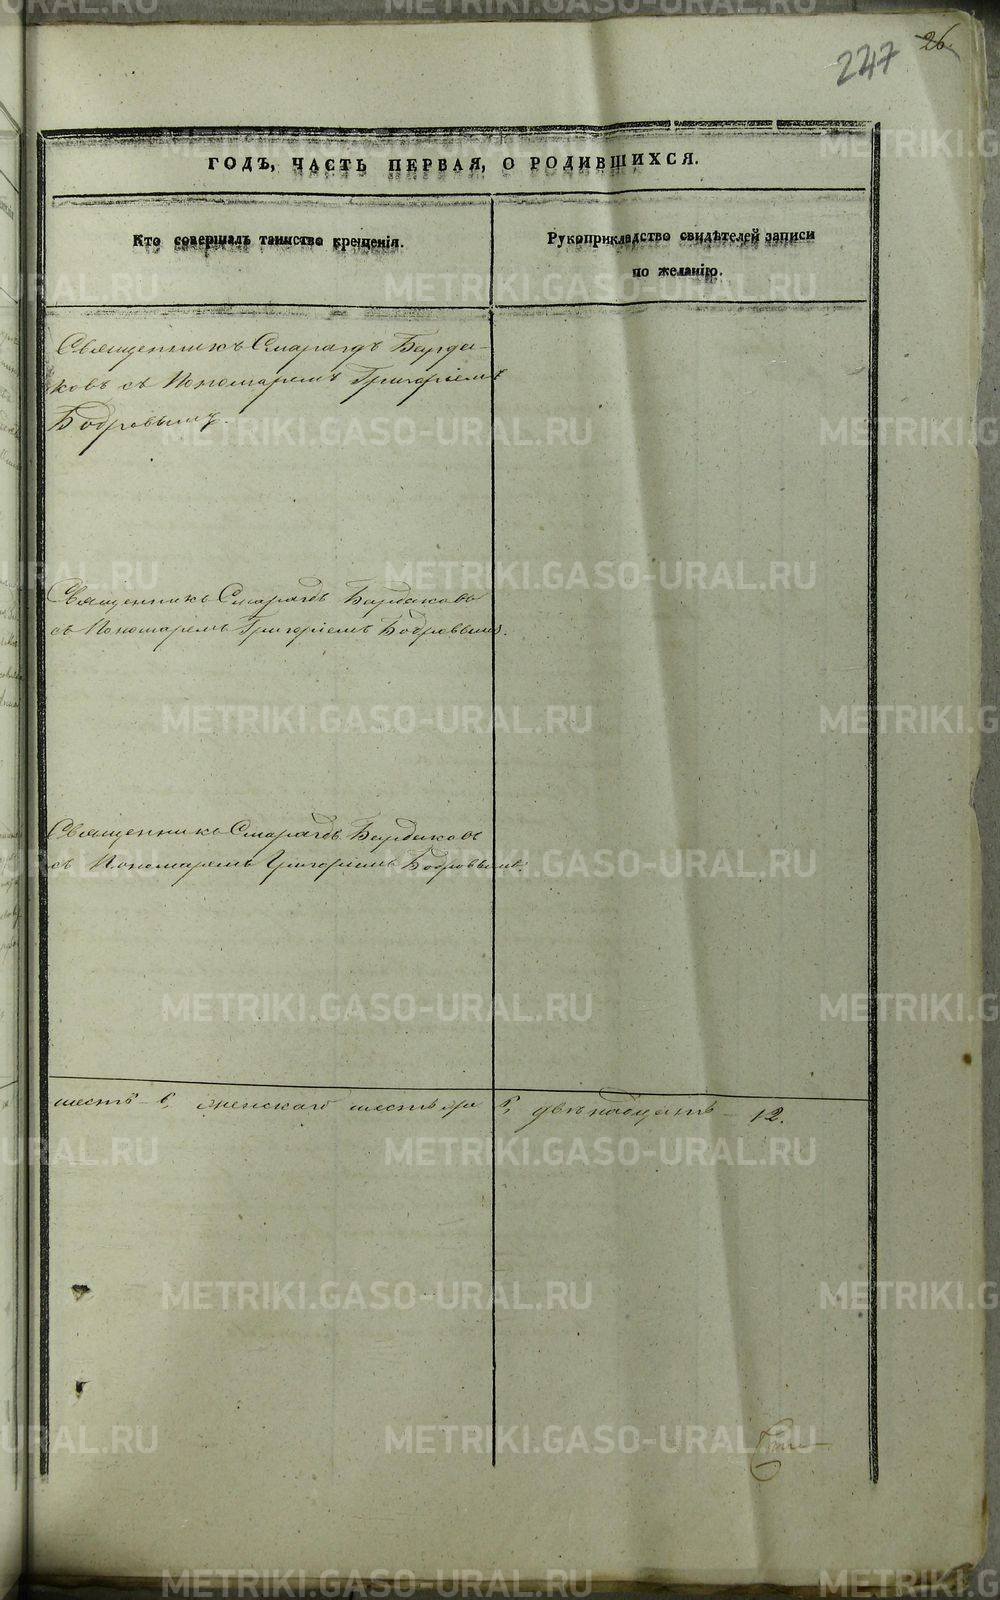 26
247
ГОДЪ, ЧАСТЬ ПЕРВАЯ, О РОДИВШИХСЯ.
Кто совершалъ таинство крещенія.
Рукоприкладство свидѣтелей записи
по желанію.
Священникъ Смарагдъ Барда-
ковъ съ Пономаремъ Григоріемъ
Бобровымъ.
Священникъ Смарагдъ Бардаковъ
съ Пономаремъ Григоріемъ Бобровымъ.
Священникъ Смарагдъ Бардаковъ
съ Пономаремъ Григоріемъ Бобровымъ.
шесть 6, женскаго шесть 6, двѣнадцать 12.
METRIKI.GASO-URAL.RU